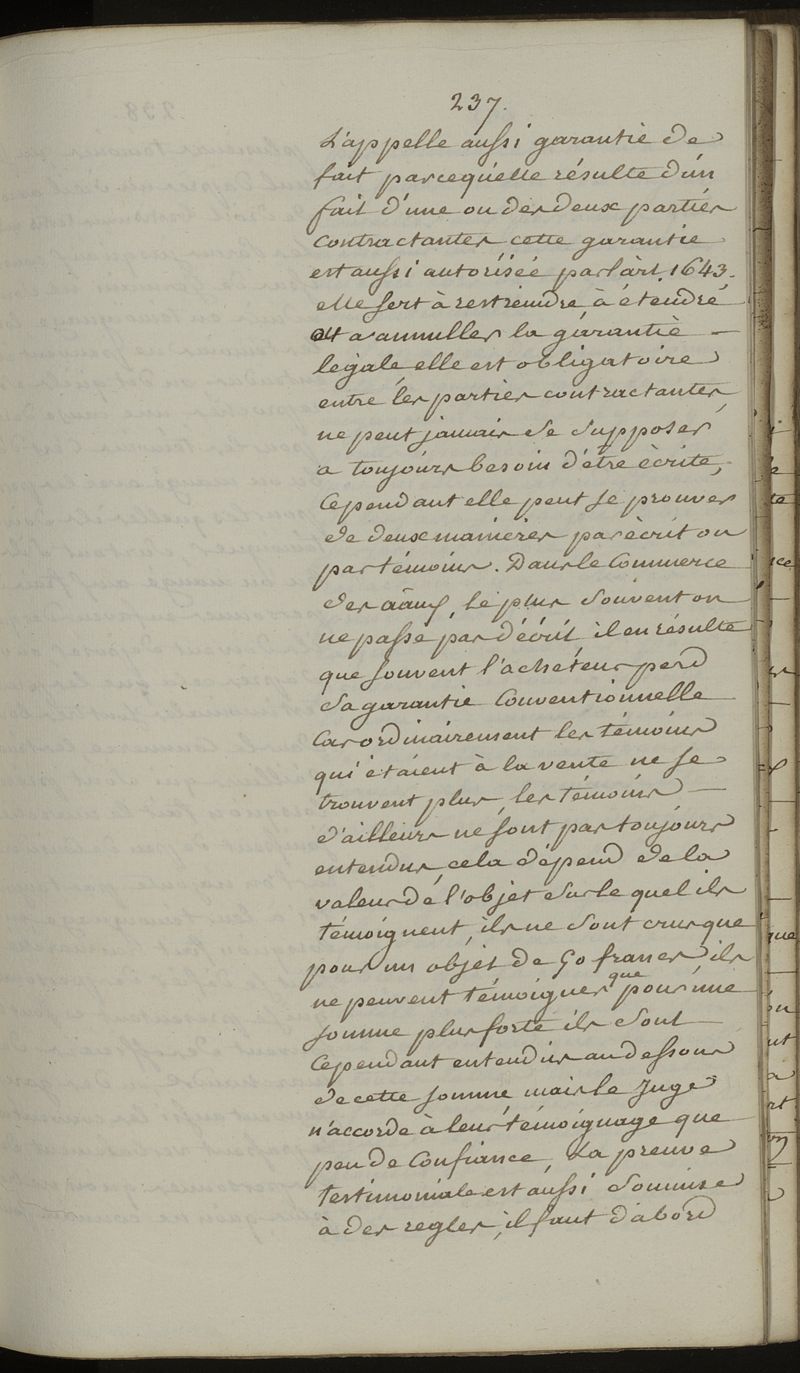 237.
L'appelle aussi garantie de
fait parcequ'elle résulte d'un
fait d'une ou des deux parties
contractantes cette garantie
est aussi autorisée par l'art. 1643.
elle sert à restreindre à étendre
et a annuller la garantie —
legale elle est obligatoire
entre les parties contractantes
ne peut jamais se supposer
a toujours besoin d'être écrite,
Cependant elle peut se prouver
de deux manieres par écrit ou
par témoins. Dans le Commerce
des aãux, le plus souvent on
ne passe pas d'écrit il en résulte
que souvent l'acheteur perd
sa garantie Conventionnelle
Car ordinairement les témoins
qui étaient à la vente ne se
trouvent plus, les témoins —
d'ailleurs ne sont pas toujours
entendus, cela dépend de la
valeur de l'objet sur le quel ils
témoignent, ils ne sont crus que
pour un objet de 50 francs ils
ne peuvent témoigner que pour une
somme plus forte ils sont
Cependant entendus au dessous
de cette somme mais le Juge
n'accorde à leur témoignage que
peu de Confiance, La preuve
testimoniale est aussi soumise
à des regles, il faut d'abord